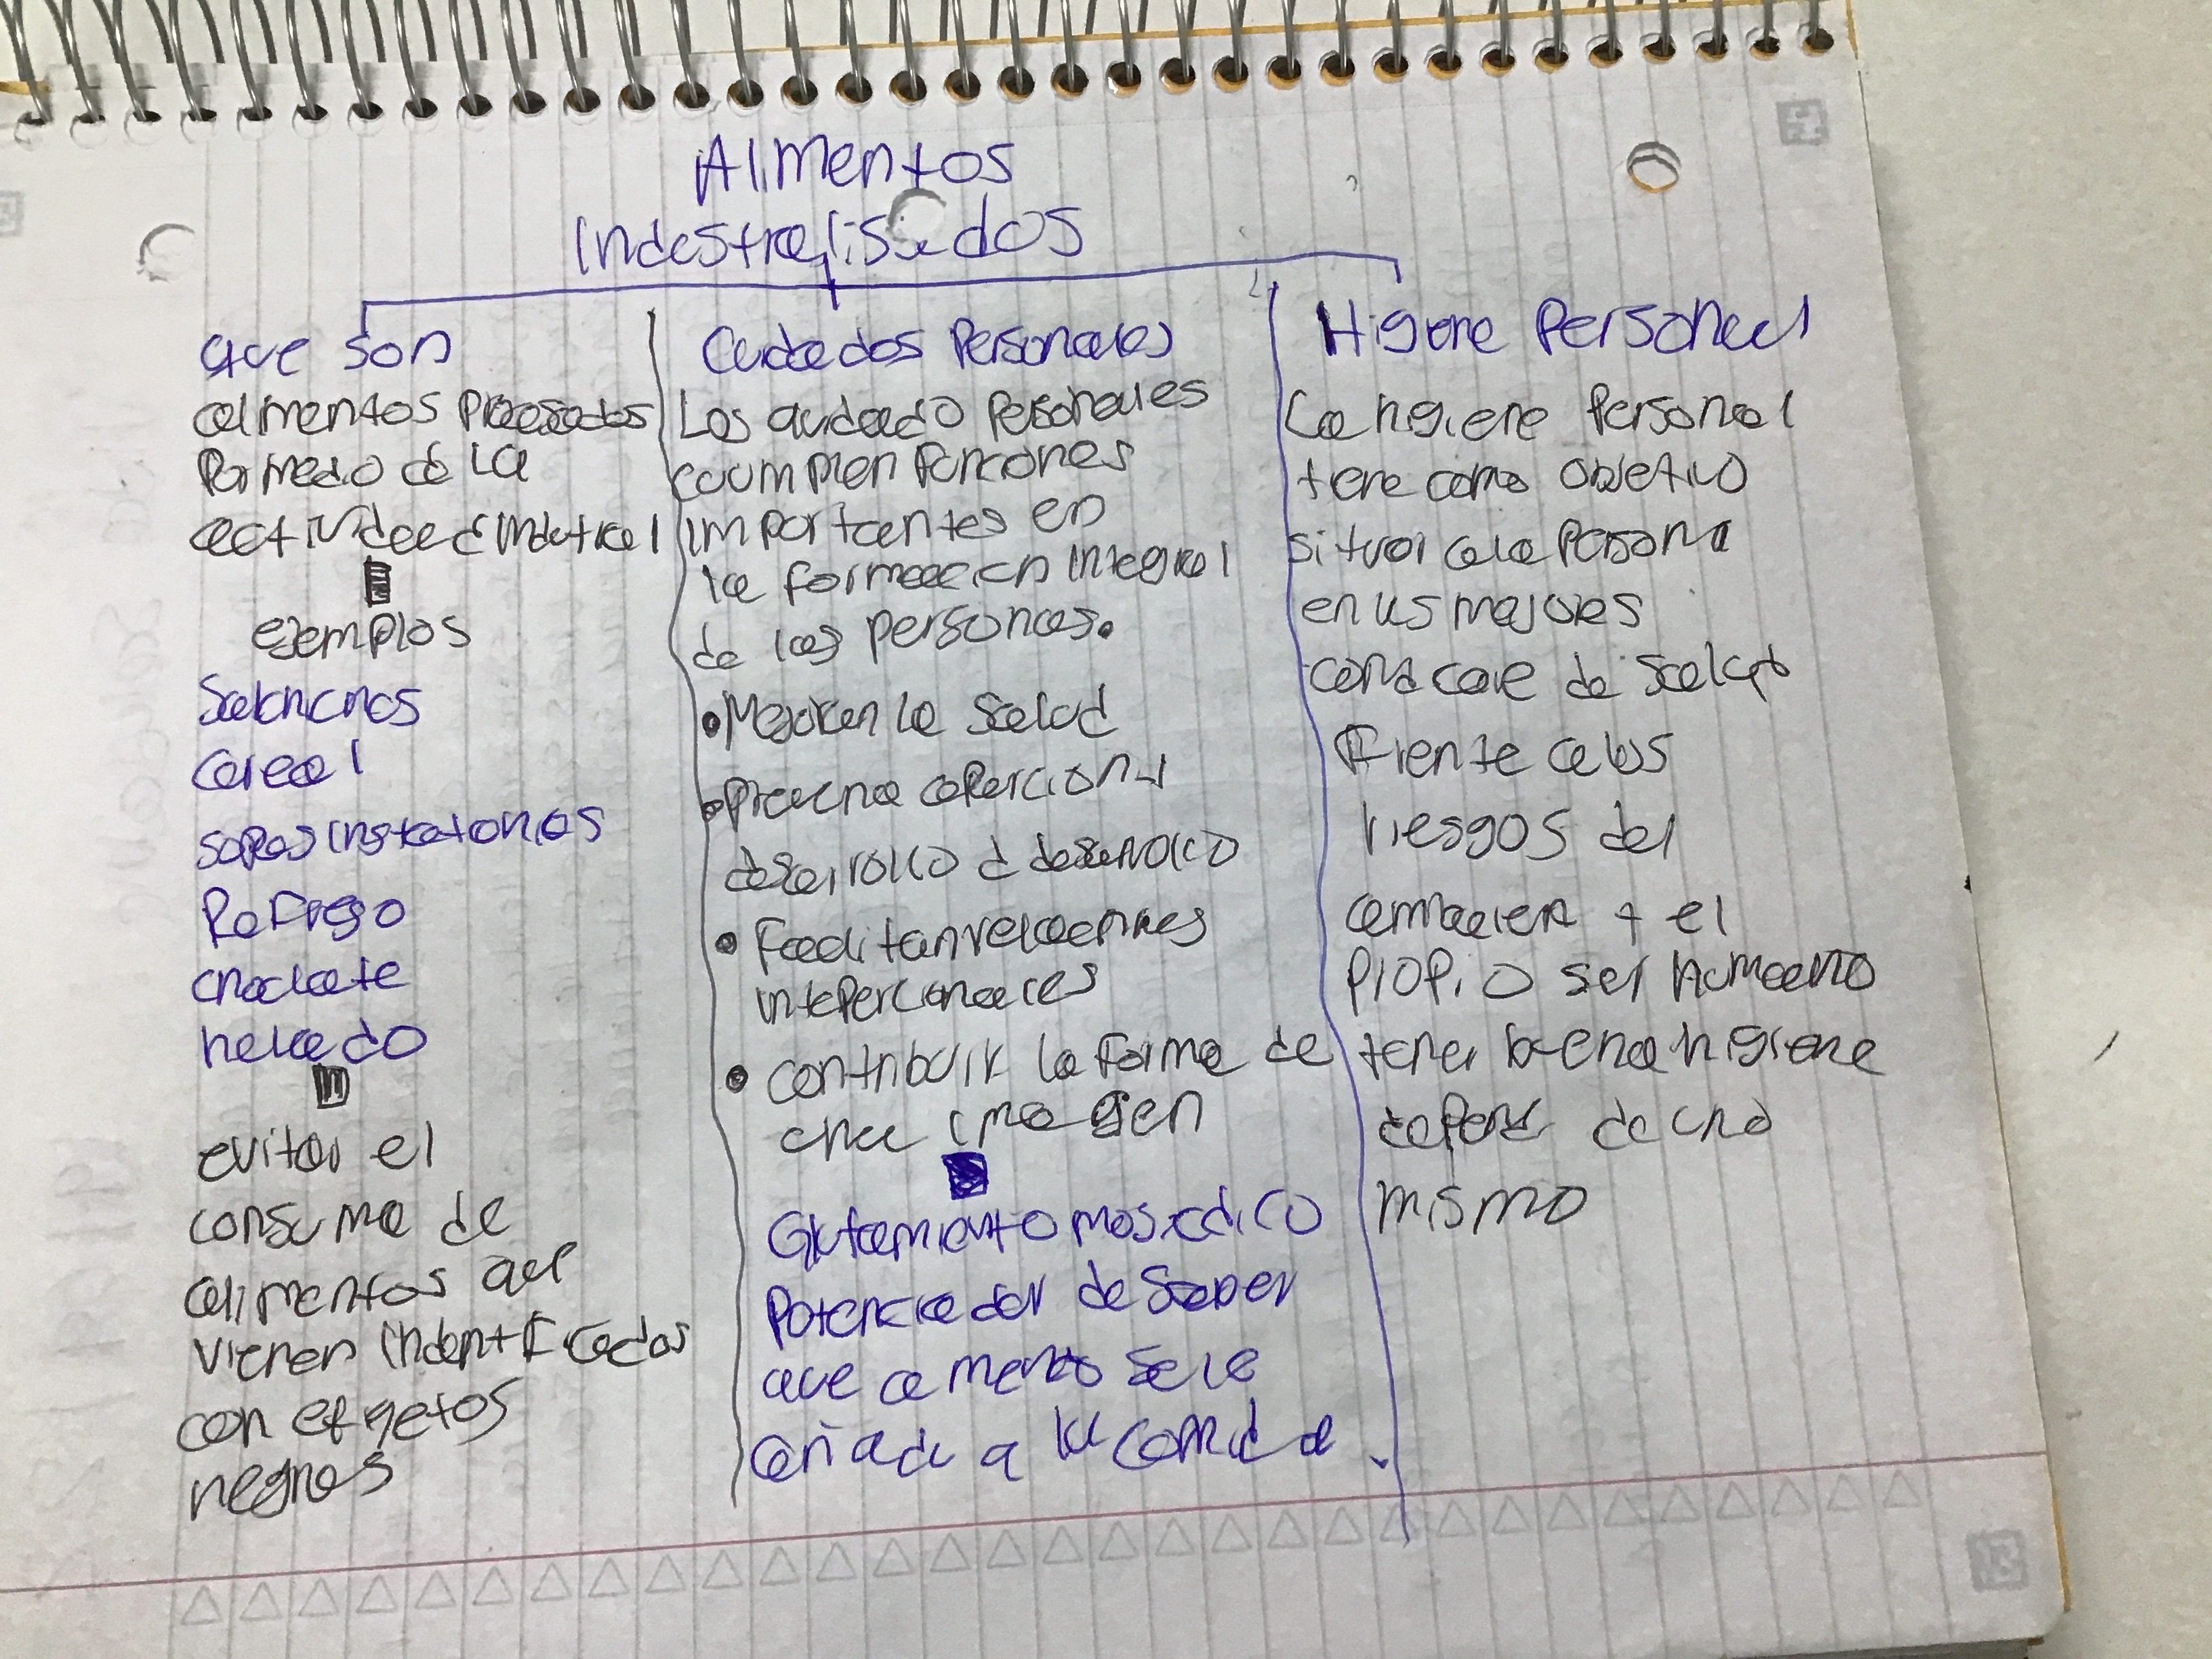 Alimentos
Indestralisados
que son
alimentos procesados
Por medio de la
actividad indutrial
ejemplos
Salchichas
Cereal
sopas instatanias
Refresco
choclate
helado
evitar el
consumo de
alimentos que
vienen indentificados
con etiqetos
negros
Cuidados Personales
Los cuidado Personales
cuumplen funciones
importantes en
la formacion integral
de las personas.
• Mejoran la salud
•
desarrollo d desarrollo
• Facilitan relaciones
intepercionales
• contribuir la forma de
una imagen
Glutamiento mosodico
Potenciador de Sabor
que a menudo se le
añade a la comida.
Higiene Personal
La higiene Personal
tiene como objetivo
situar a la Persona
en us mejores
de salud
Frente a los
riesgos del
+ el
propio ser humano
tener buena higiene
depend de uno
mismo